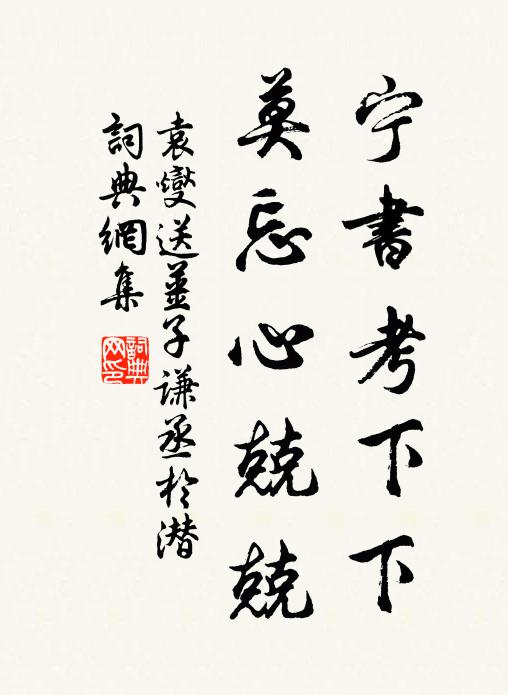 宁書考下下
莫忘心兢兢
袁燮送薑子谦丞於潜
詞典網集
詞典网印